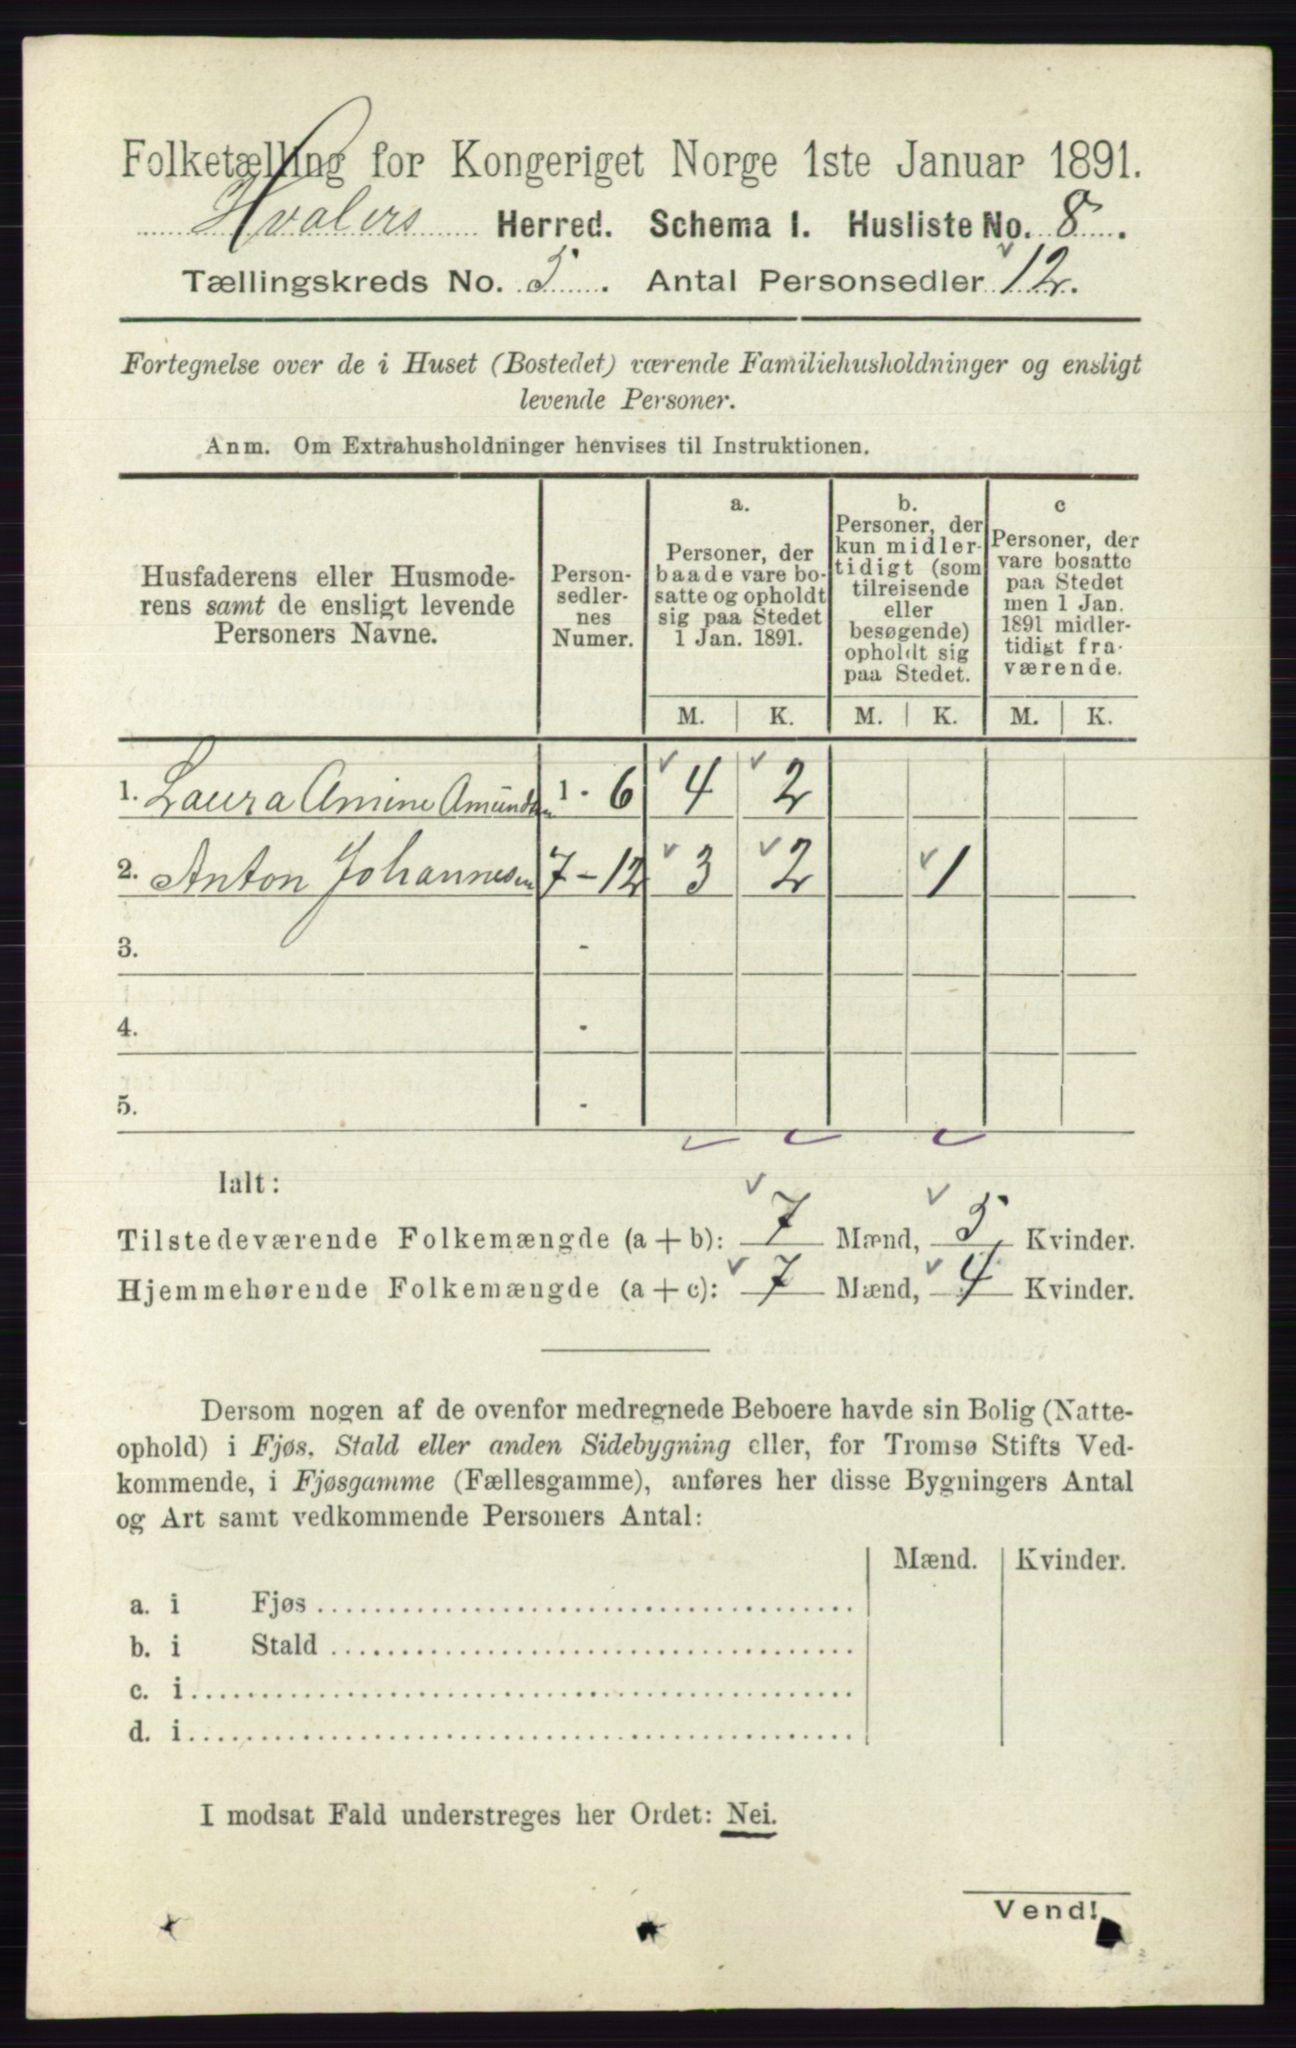 Folketælling for Kongeriget Norge 1ste Januar 1891.
Hvalers Herred. Schema I. Husliste No. 8.
Tællingskreds No. 5. Antal Personsedler 12.
Fortegnelse over de i Huset (Bostedet) værende Familiehusholdninger og ensligt
levende Personer.
Anm. Om Extrahusholdninger henvises til Instruktionen.
Husfaderens eller Husmode-
rens samt de ensligt levende
Personers Navne.
Person-
sedler-
nes
Numer.
a.
Personer, der
baade vare bo-
satte og opholdt
sig paa Stedet
1 Jan. 1891.
b.
Personer, der
kun midler-
tidigt (som
tilreisende
eller
besøgende)
opholdt sig
paa Stedet.
c
Personer, der
vare bosatte
paa Stedet
men 1 Jan.
1891 midler-
tidigt fra-
værende.
M. K. M. K. M. K.
1. Laura Amine Amundsen 1 - 6 4 2
2. Anton Johannesen 7 - 12 3 2 1
3. -
4. -
5. -
Ialt:
Tilstedeværende Folkemængde (a + b): 7 Mænd, 5 Kvinder.
Hjemmehørende Folkemængde (a + c): 7 Mænd, 4 Kvinder.
Dersom nogen af de ovenfor medregnede Beboere havde sin Bolig (Natte-
ophold) i Fjøs, Stald eller anden Sidebygning eller, for Tromsø Stifts Ved-
kommende, i Fjøsgamme (Fællesgamme), anføres her disse Bygningers Antal
og Art samt vedkommende Personers Antal:
Mænd. Kvinder.
a. i Fjøs
b. i Stald
c. i
d. i
I modsat Fald understreges her Ordet: Nei.
Vend!